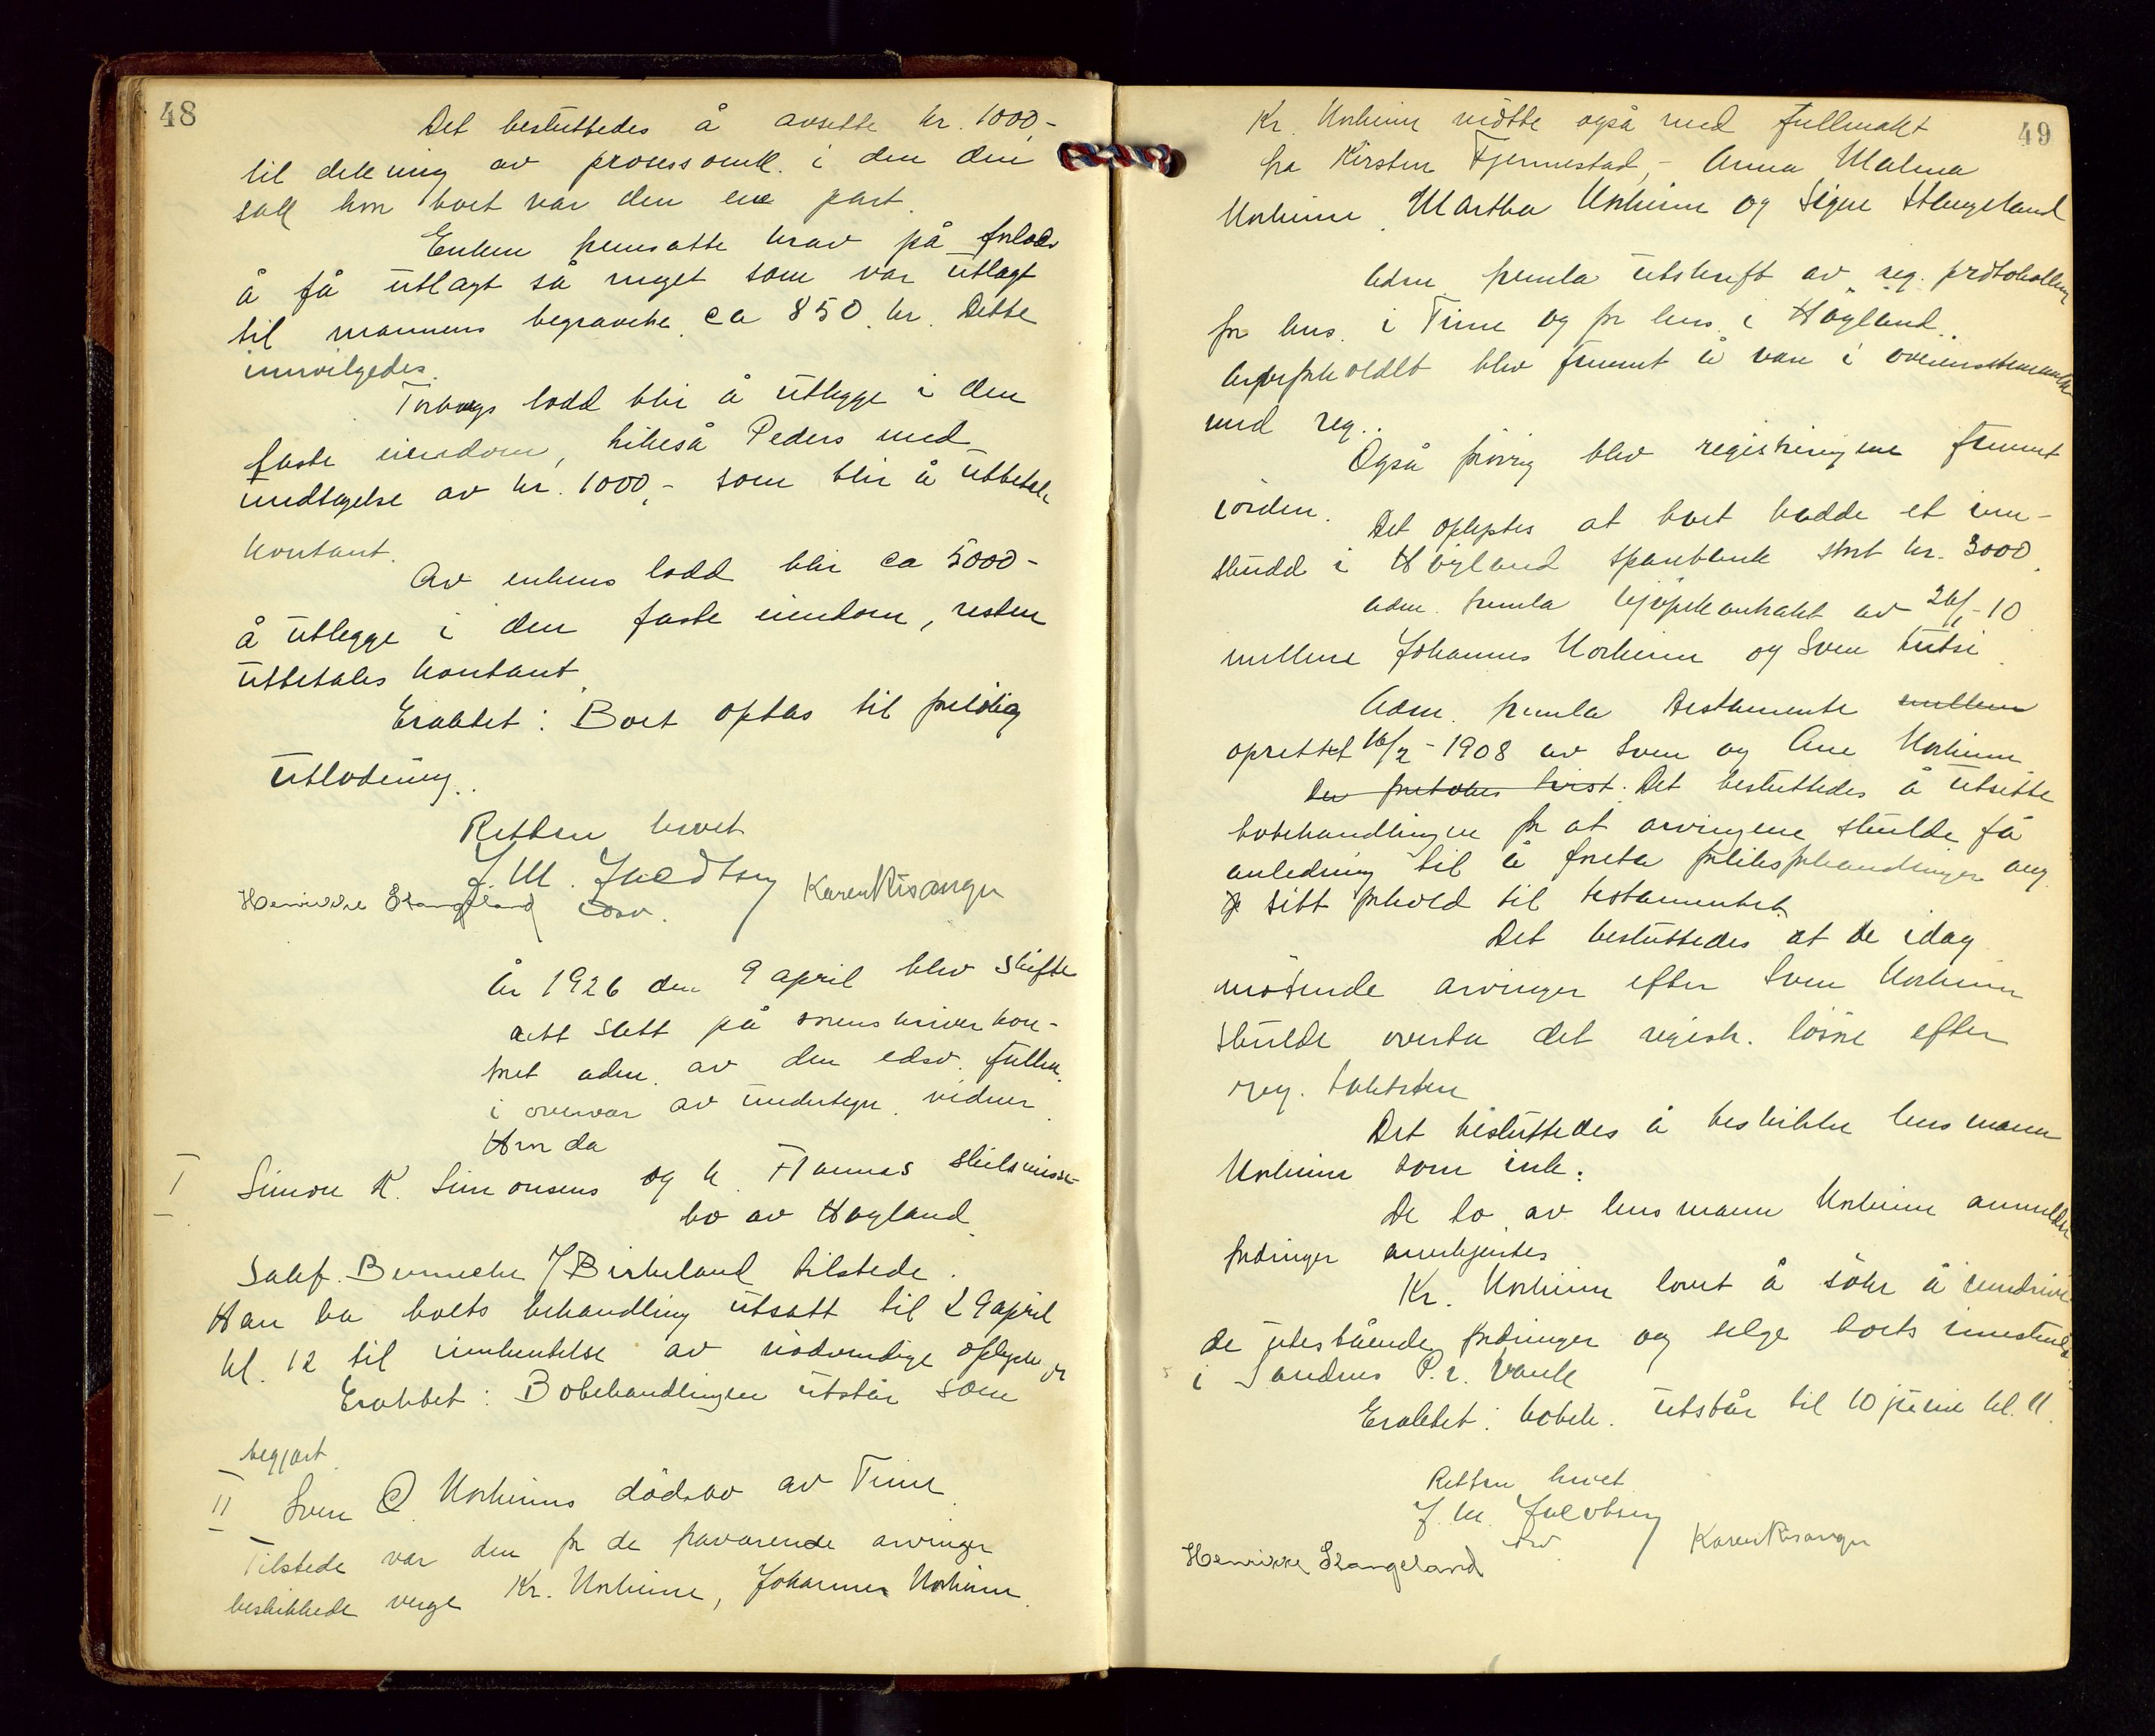 48
Det besluttedes å avsette kr. 1000-
til dekning av prosessomk. i den
sak hvor boet var den ene part.
Enken fremsatte krav på forlods
å få utlagt så meget som var utlagt
til mannens begravelse ca 850 kr. Dette
innvilgedes.
Torborgs lodd blir å utlegge i den
faste eiendom, likeså Peders med
undtagelse av kr. 1000,- som blir å utbetale
kontant.
Av enkens lodd blir ca 5000-
å utlegge i den faste eiendom, resten
utbetales kontant.
Eraktet: Boet optas til foreløbig
utlodning.
Retten hevet
J. M. Jacobsen
edsv.
Henrikke Stangeland
Karen Risanger
År 1926 den 9 april blev skifte
rett satt på sorenskriverkon-
toret adm. av den edsv. fullm.
i overvær av undertegn. vidner
Hvor da
I
Simon K. Simonsens og h. Hannas skilsmisse-
bo av Høyland.
Sakf. Birkeland tilstede.
Han ba boets behandling utsatt til 29 april
kl. 12 til innhentelse av nødvendige oplysn.
Eraktet: Bobehandlingen utstår som
begjært.
II
Sven Norheims dødsbo av Time.
Tilstede var den for de fraværende arvinger
beskikkede verge Kr. Norheim, Johannes Norheim.
49
Kr. Norheim møtte også med fullmakt
fra Kirsten Fjermestad, - Anna Malena
Norheim, Martha Norheim og Signe Stangeland
Adm. fremla utskrift av reg. protokollen
for lens. i Time og for lens. i Høyland.
Arveforholdet blev funnet å være i overensstemmelse
med reg..
Også forøvrig blev registreringene funnet
iorden.
Det oplystes at boet hadde et inn-
skudd i Høyland sparebank stort kr. 3000.
Adm. fremla kjøpekontrakt av 26/-10
mellem Johannes Norheim og Sven
Adm. fremla testamente mellem
oprettet 16/2-1908 av Sven og Ane Norheim.
Det besluttedes å utsette
bobehandlingen for at arvingene skulde få
anledning til å foreta forliksforhandlinger ang.
sitt forhold til testamentet.
Det besluttedes at de idag
møtende arvinger efter Sven Norheim
skulde overta det registr. løsøre efter
reg. taksten
Det besluttedes å beskikke lensmann
Norheim som ink.
De to av lensmann Norheim anmeldte
fordringer anerkjentes
Kr. Norheim lovet å søke å inndrive
de utestående fordringer og selge boets
i Sandnes P. r. bank
Eraktet: bobeh. utstår til 10 juni kl. 11.
Retten hevet
J. M. Jacobsen
edsv.
Henrikke Stangeland
Karen Risanger